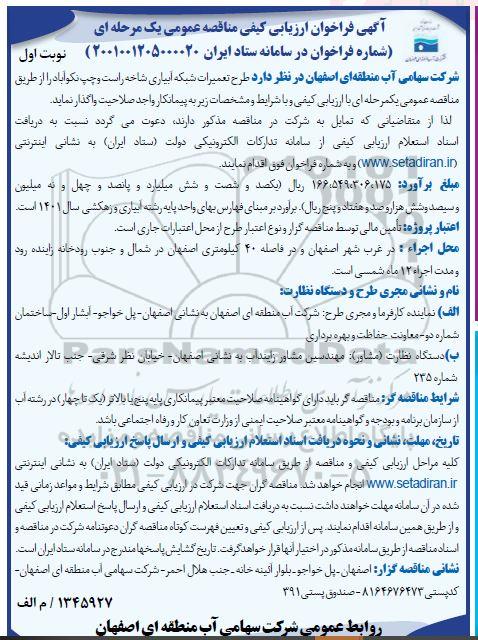 آگهی فراخوان ارزیابی کیفی مناقصه عمومی یک مرحله ای
(شماره فراخوان در سامانه ستاد ایران 2001001205000020)
نوبت اول
شرکت سهامی آب منطقه‌ای اصفهان در نظر دارد طرح تعمیرات شبکه آبیاری شاخه راست و چپ نکوآباد را از طریق
مناقصه عمومی یکمرحله ای با ارزیابی کیفی و با شرایط و مشخصات زیر به پیمانکار واجد صلاحیت واگذار نماید.
لذا از متقاضیانی که تمایل به شرکت در مناقصه مذکور دارند، دعوت می گردد نسبت به دریافت
اسناد استعلام ارزیابی کیفی از سامانه تدارکات الکترونیکی دولت (ستاد ایران) به نشانی اینترنتی
(www.setadiran.ir) و به شماره فراخوان فوق اقدام نمایند.
مبلغ برآورد: 166،549،306،175 ریال (یکصد و شصت و شش میلیارد و پانصد و چهل و نه میلیون
و سیصدوشش هزار و صد و هفتاد و پنج ریال). برآورد بر مبنای فهارس بهای واحد پایه رشته آبیاری و زهکشی سال 1401 است.
اعتبار پروژه: تأمین مالی توسط مناقصه گزار و نوع اعتبار طرح از محل اعتبارات جاری است.
محل اجراء : در غرب شهر اصفهان و در فاصله 40 کیلومتری اصفهان در شمال و جنوب رودخانه زاینده رود
و مدت اجراء 12 ماه شمسی است.
نام و نشانی مجری طرح و دستگاه نظارت:
الف) نماینده کارفرما و مجری طرح: شرکت آب منطقه ای اصفهان به نشانی اصفهان- پل خواجو- آبشار اول-ساختمان
شماره دو-معاونت حفاظت و بهره برداری
ب) دستگاه نظارت (مشاور): مهندسین مشاور زایندآب به نشانی اصفهان- خیابان نظر شرقی- جنب تالار اندیشه
شماره 235
شرایط مناقصه گر: مناقصه گر باید دارای گواهینامه صلاحیت معتبر پیمانکاری پایه پنج یا بالاتر (یک تا چهار) در رشته آب
از سازمان برنامه و بودجه و گواهینامه معتبر صلاحیت ایمنی از وزارت تعاون کار و رفاه اجتماعی باشد.
تاریخ، مهلت، نشانی و نحوه دریافت اسناد استعلام ارزیابی کیفی و ارسال پاسخ ارزیابی کیفی:
کلیه مراحل ارزیابی کیفی و مناقصه از طریق سامانه تدارکات الکترونیکی دولت (ستاد ایران) به نشانی اینترنتی
www.setadiran.ir انجام خواهد شد. مناقصه گران جهت شرکت در ارزیابی کیفی مطابق شرایط و مواعد زمانی قید
شده در آن سامانه مهلت خواهند داشت نسبت به دریافت اسناد استعلام ارزیابی کیفی و ارسال پاسخ استعلام ارزیابی کیفی
و از طریق همین سامانه اقدام نمایند. پس از ارزیابی کیفی و تعیین فهرست کوتاه مناقصه گران دعوتنامه شرکت در مناقصه و
اسناد مناقصه از طریق سامانه مذکور در اختیار آنها قرار خواهد گرفت. تاریخ گشایش پاسخها مندرج در سامانه ستاد ایران است.
نشانی مناقصه گزار: اصفهان - پل خواجو - بلوار آئینه خانه - جنب هلال احمر- شرکت سهامی آب منطقه ای اصفهان -
کدپستی 8164676473 - صندوق پستی 391
1345927 / م الف
روابط عمومی شرکت سهامی آب منطقه ای اصفهان